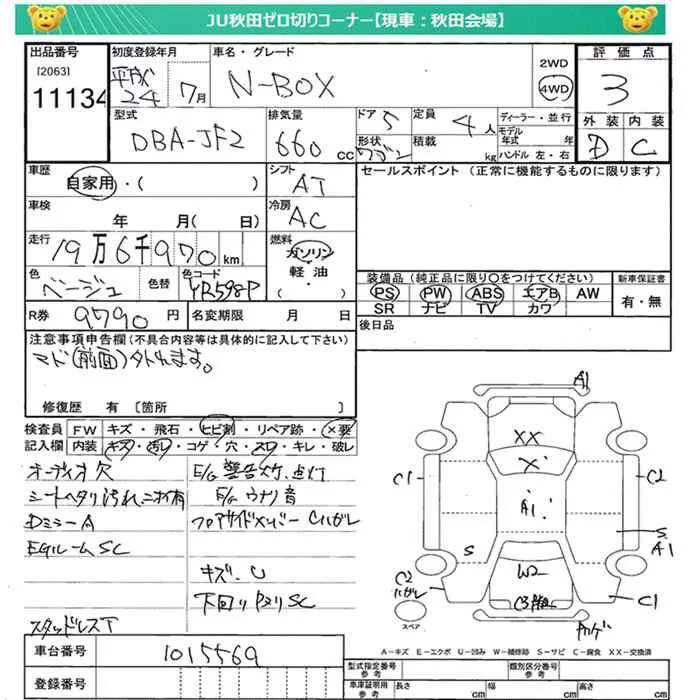 JU秋田ゼロ切りコーナー【現車：秋田会場】
出品番号 初度登録年月 車名・グレード 2WD 評価点
[2063] 平成 24 7月 N-BOX 4WD 3
11134
型式 排気量 ドア 5 定員 4人 ディーラー・並行 外装 内装
DBA-JF2 660cc 形状 ワゴン 積載 kg モデル年式 年 D C
ハンドル 左・右
車歴 シフト セールスポイント（正常に機能するものに限ります）
自家用・（ ） AT
車検 冷房
年 月（ 日） AC
走行 燃料
19万6千970km ガソリン・軽油・（ ）
色 色替 色コード 装備品（純正品に限り○をつけてください） 新車保証書
ベージュ YR598P PS PW ABS エアB AW 有・無
SR ナビ TV カワ
R券 9790円 名変期限 月 日 後日品
注意事項申告欄（不具合内容等は具体的に記入して下さい）
マド(前面)外れます。
修復歴 有 [箇所 ]
検査員 FW キズ・飛石・ヒビ割・リペア跡・×要
記入欄 内装 キズ・汚レ・コゲ・穴・スレ・キレ・破レ
オーディオ穴 E/G警告灯点灯
シートヘタリ汚れニオイ有 E/Gウナリ音
DミラーA フロアサイドメンバー Cハガレ
EGルームSC
キズ、U
下回りPヌリSC
スタッドレスT
A1
XX
X
C1 C2
A1
S A1
S
C2ハガレ W2 C1
スペア
A－キズ E－エクボ U－凹み W－補修跡 S－サビ C－腐食 XX－交換済
車台番号 1015569 型式指定番号 参考 類別区分番号 参考
登録番号 車庫証明用 参考 長さ cm 幅 cm 高さ cm